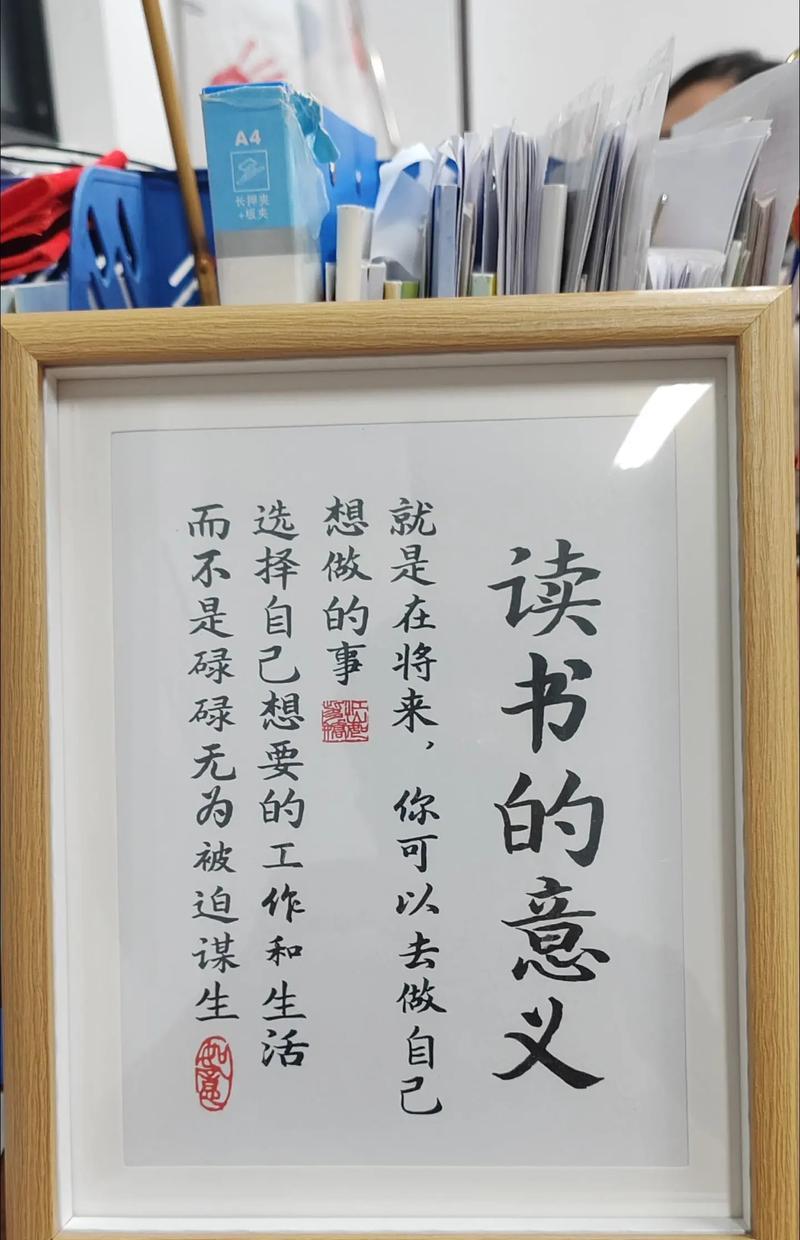 读书的意义
就是在将来，你可以去做自己
想做的事
选择自己想要的工作和生活
而不是碌碌无为被迫谋生
如意
A4
长押夹
+板夹